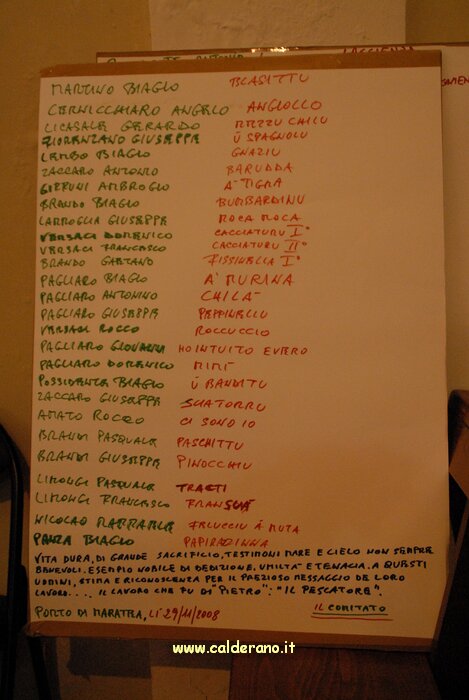 MARTINO BIAGIO BLASITTU
CERNICCHIARO ANGELO ANGIOLLO
LICASALE GERARDO MEZZU CHILU
FIORENZANO GIUSEPPE Ú SPAGNOLU
LEMBO BIAGIO GNAZIU
ZACCARO ANTONIO BARUDDA
AMBROGIO A' TIGRA
BRANDO BIAGIO BUMBARDINU
LARROGLIA GIUSEPPE ROCA ROCA
VERSACI DOMENICO CACCIATURU I°
VERSACI FRANCESCO CACCIATURU II°
BRANDO GAETANO FISSINELLA I°
PAGLIARO BIAGIO A' MURINA
PAGLIARO ANTONINO CHILÁ
PAGLIARO GIUSEPPE PEPPINELLU
VERSACI ROCCO ROCCUCCIO
PAGLIARO GIOVANNI HO INTUITO EVERO
PAGLIARO DOMENICO MIMÍ
POSSIDENTE BIAGIO Ú BANDITU
ZACCARO GIUSEPPE SCIATORRU
AMATO ROCCO CI SONO IO
BRANDI PASQUALE PASCHITTU
BRANDI GIUSEPPE PINOCCHIU
LIMONGI PASQUALE
LIMONGI FRANCESCO
NICOLAO RAFFAELE FELUCCIU Á MUTA
PANZA BIAGIO PAPIRAZINNA
VITA DURA, DI GRANDE SACRIFICIO, TESTIMONI MARE E CIELO NON SEMPRE
BENEVOLI. ESEMPIO NOBILE DI DEDIZIONE, UMILTA' E TENACIA. A QUESTI
UOMINI, STIMA E RICONOSCENZA PER IL PREZIOSO MESSAGGIO DEL LORO
LAVORO.... IL LAVORO CHE FU DI "PIETRO": "IL PESCATORE".
PORTO DI MARATEA, LI' 29/11/2008 IL COMITATO
www.calderano.it